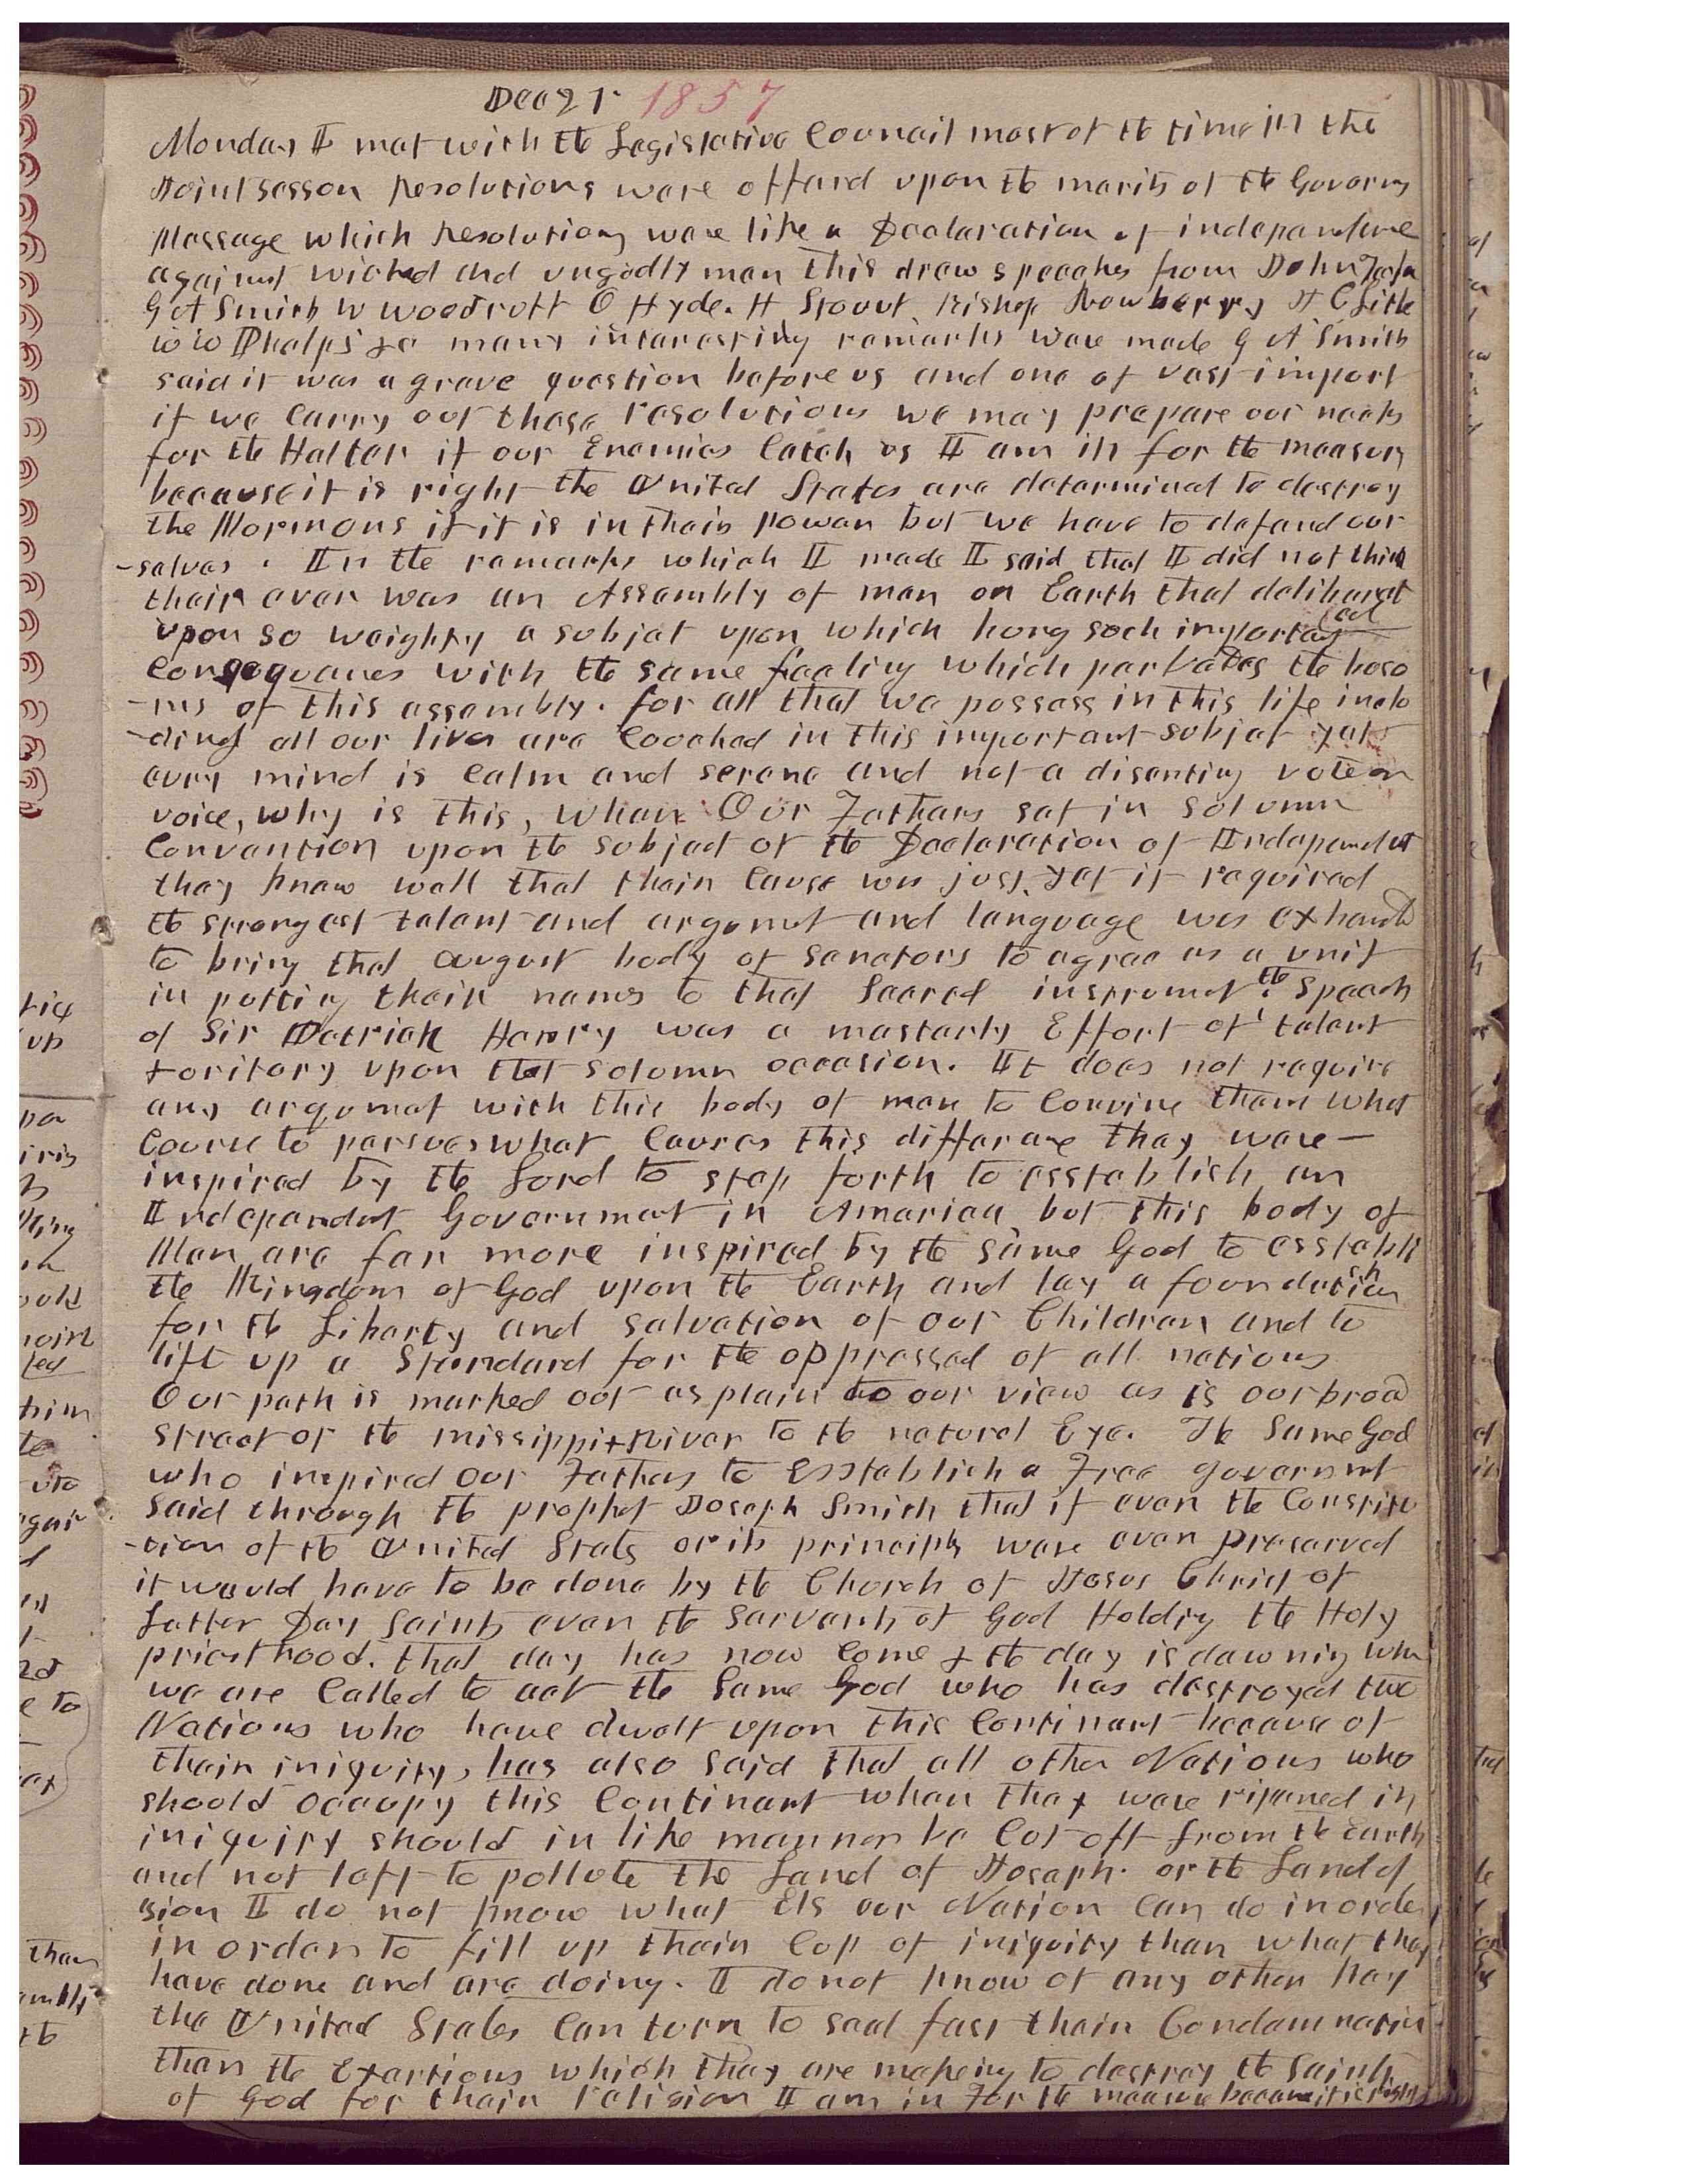 Dec 21 1857
Monday I met with the Legislative Councail most of the time in the
Joint Sesson Resolutions were offerd upon the merits of the Governs
Message which Resolutions were like a Declaration of independence
against wicked and ungodly men this drew speeches from John Taylor
G A Smith W Woodruff O Hyde. H Stout Bishop Newberry J C Little
W W Phelps &c many interesting remarks were made G A Smith
said it was a grave question before us and one of vast import
if we Carry out these resolutions we may prepare our necks
for the Halter if our Enemies Catch us I am in for the measure
because it is right the United States are determined to destroy
the Mormons if it is in their power but we have to defend our
-selves. In the remarks which I made I said that I did not think
their ever was an Assembly of men on Earth that deliberat
ed
upon so weighty a subject upon which hung such important
Consequences with the same feeling which pervades the boso
-ms of this assembly. for all that we possess in this life inclu
-ding all our lives are Couched in this important subject yet
every mind is Calm and serene and not a disenting vote or
voice, why is this, when Our Fathers sat in solumn
Convention upon the subject of the Declaration of Independent
they knew well that their Cause was just, yet it required
the strongest talent and argument and language was exhausted
to bring that august body of senators to agree as a unit
in putting their names to that Sacred instrument. the Speech
of Sir Patrick Henry was a masterly Effort of talent
&oritory upon that solomn occasion. It does not require
any argument with this body of men to Convince them what
Course to persue, what Causes this difference they were —
inspired by the Lord to step forth to esstablish an
Independant Government in America but this body of
Men are far more inspired by the same God to esstabli
sh
the Kingdom of God upon the Earth and lay a foundation
for the Liberty and salvation of our Children and to
lift up a Standard for the oppressed of all nations
Our path is marked out as plain to our view as is our broad
street or the missippi River to the natural Eye. The Same God
who inspired our Fathers to Esstablish a Free goverment
said through the prophet Joseph Smith that if ever the Constitu
-tion of the United Stats or its principls were ever preserved
it would have to be done by the Church of Jesus Christ of
Latter Day Saints even the Servants of God Holding the Holy
priesthood. that day has now Come & the day is dawning when
we are Called to act the Same God who has destroyed two
Nations who have dwelt upon this Continant because of
their iniquity, has also said that all other Nations who
should occupy this Continant when they were ripened in
iniquity should in like manner be Cut off from the Earth
and not left to pollute the Land of Joseph. or the Land of
Zion I do not know what Els our Nation Can do in order
in order to fill up their Cup of iniquity than what they
have done and are doing. I do not know of any other Key
the United States Can turn to seal fast their Condamnation
than the exertions which they are makeing to destroy the Saints
of God for their religion I am in For the measure because it is right